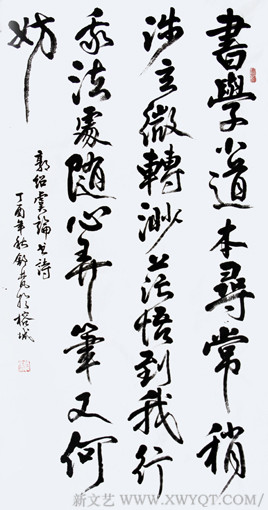 書學小道本尋常稍
涉玄微轉渺茫悟到我行
我法處随心弄筆又何
妨
郭紹虞論书詩
丁酉年秋於榕城
新文艺 WWW.XWYQT.COM/